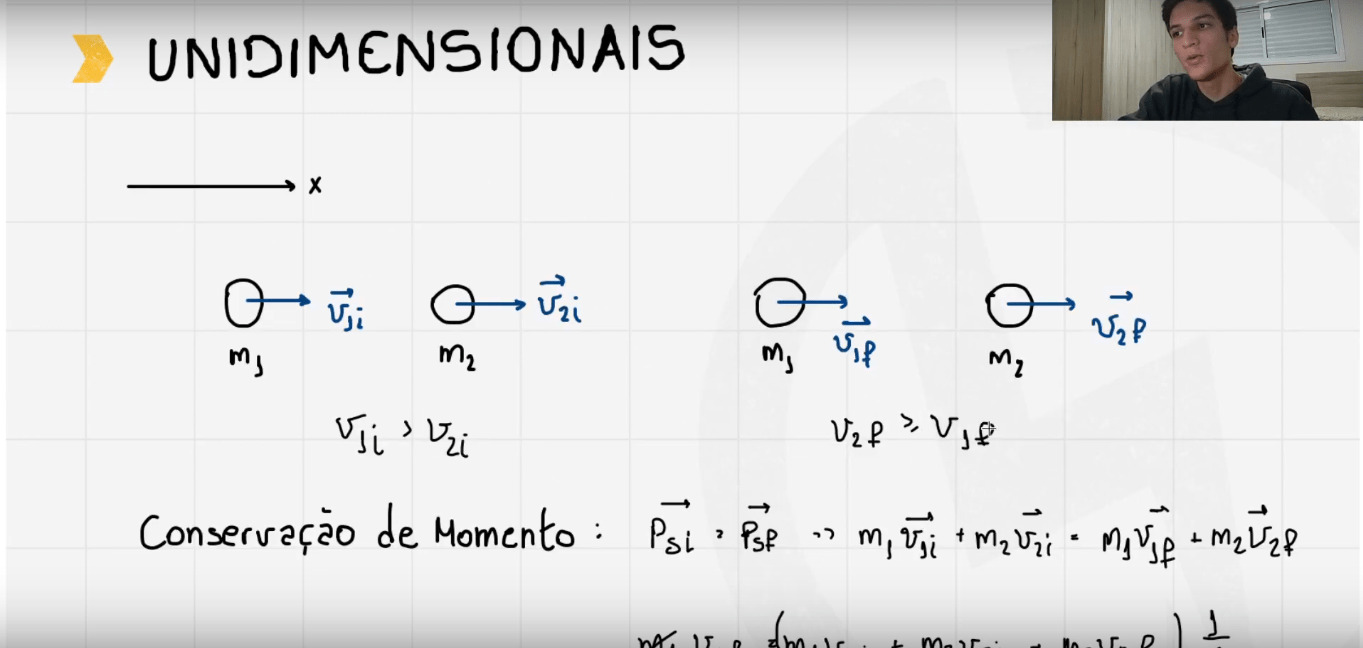 UNIDIMENSIONAIS
x
v⃗1i v⃗2i v⃗1f v⃗2f
m1 m2 m1 m2
v1i > v2i v2f ≥ v1f
Conservação de Momento : P⃗si = P⃗sf => m1v⃗1i + m2v⃗2i = m1v⃗1f + m2v⃗2f